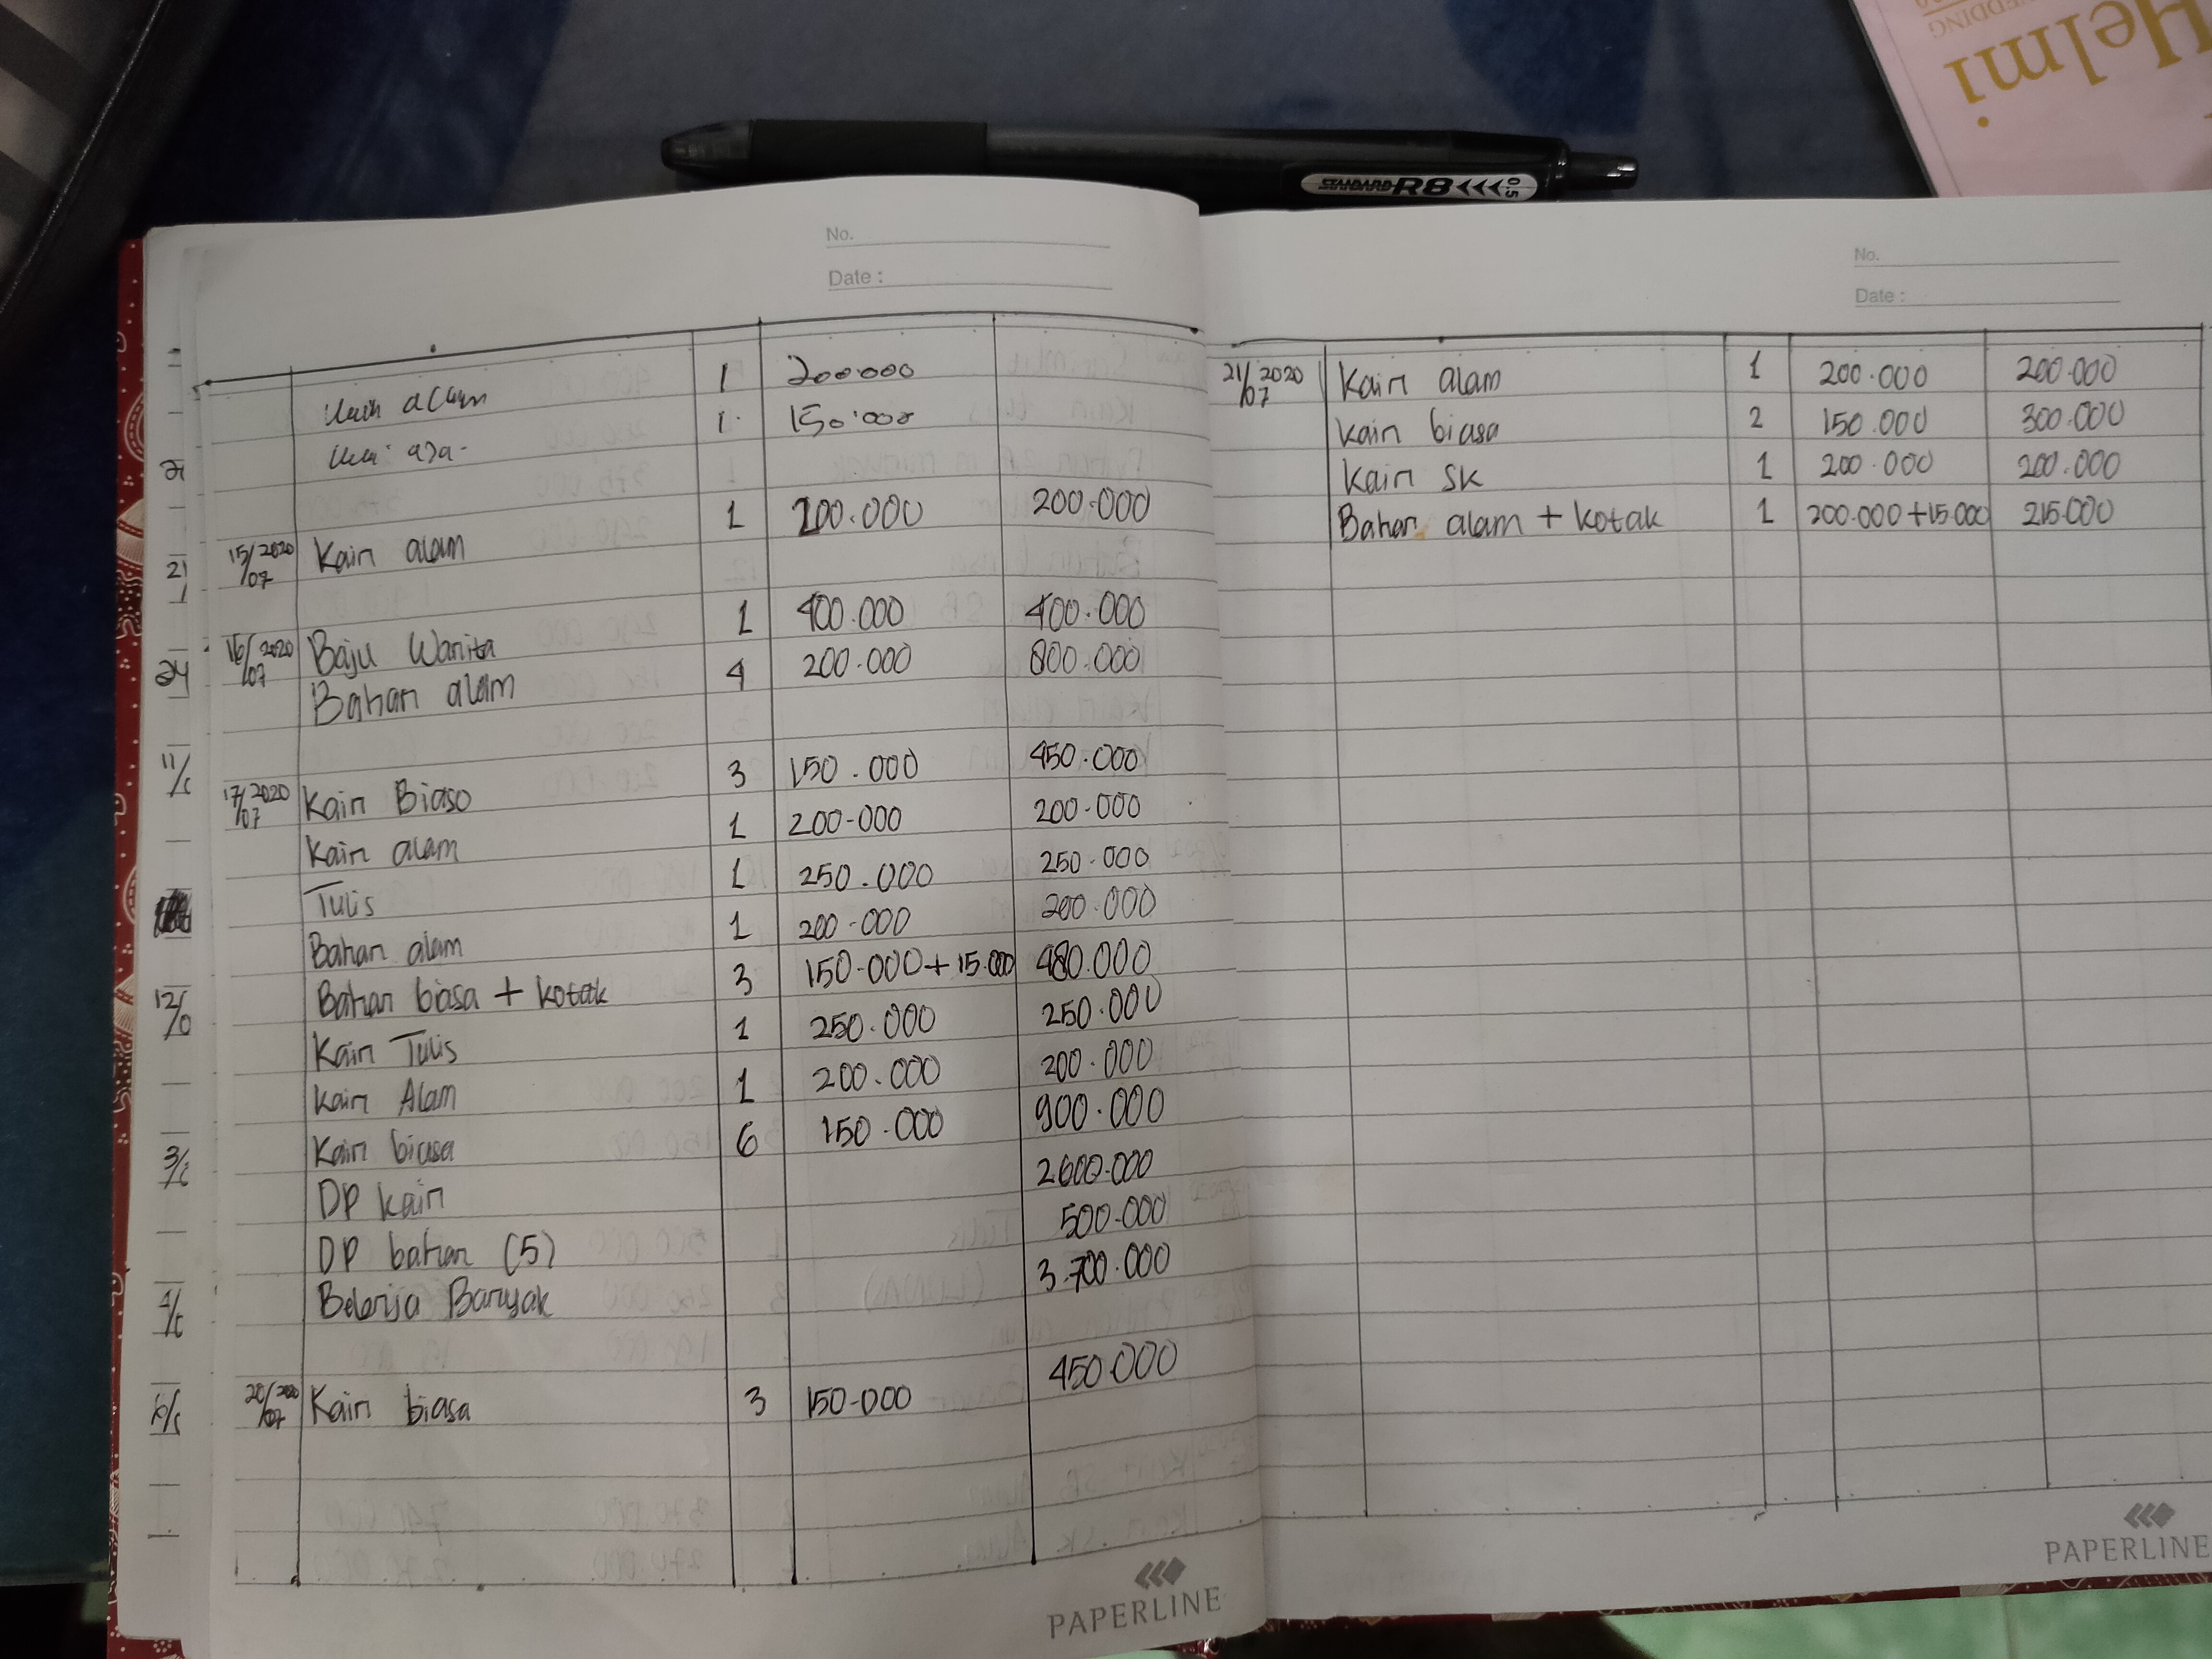 Helmi
WEDDING
STANDARD R8 <<< 0.5
No.
Date :
Kain alam 1 200.000
1 150.000
15/07 2020 Kain alam 1 200.000 200.000
16/07 2020 Baju Wanita 1 400.000 400.000
Bahan alam 4 200.000 800.000
17/07 2020 Kain Biasa 3 150.000 450.000
Kain alam 1 200.000 200.000
Tulis 1 250.000 250.000
Bahan alam 1 200.000 200.000
Bahan biasa + kotak 3 150.000 + 15.000 480.000
Kain Tulis 1 250.000 250.000
Kain Alam 1 200.000 200.000
Kain biasa 6 150.000 900.000
DP kain 2.600.000
DP bahan (5) 500.000
Belanja Banyak 3.700.000
20/07 2020 Kain biasa 3 150.000 450.000
PAPERLINE
No.
Date :
21/07 2020 Kain alam 1 200.000 200.000
Kain biasa 2 150.000 300.000
Kain SK 1 200.000 200.000
Bahan alam + kotak 1 200.000 + 15.000 215.000
PAPERLINE